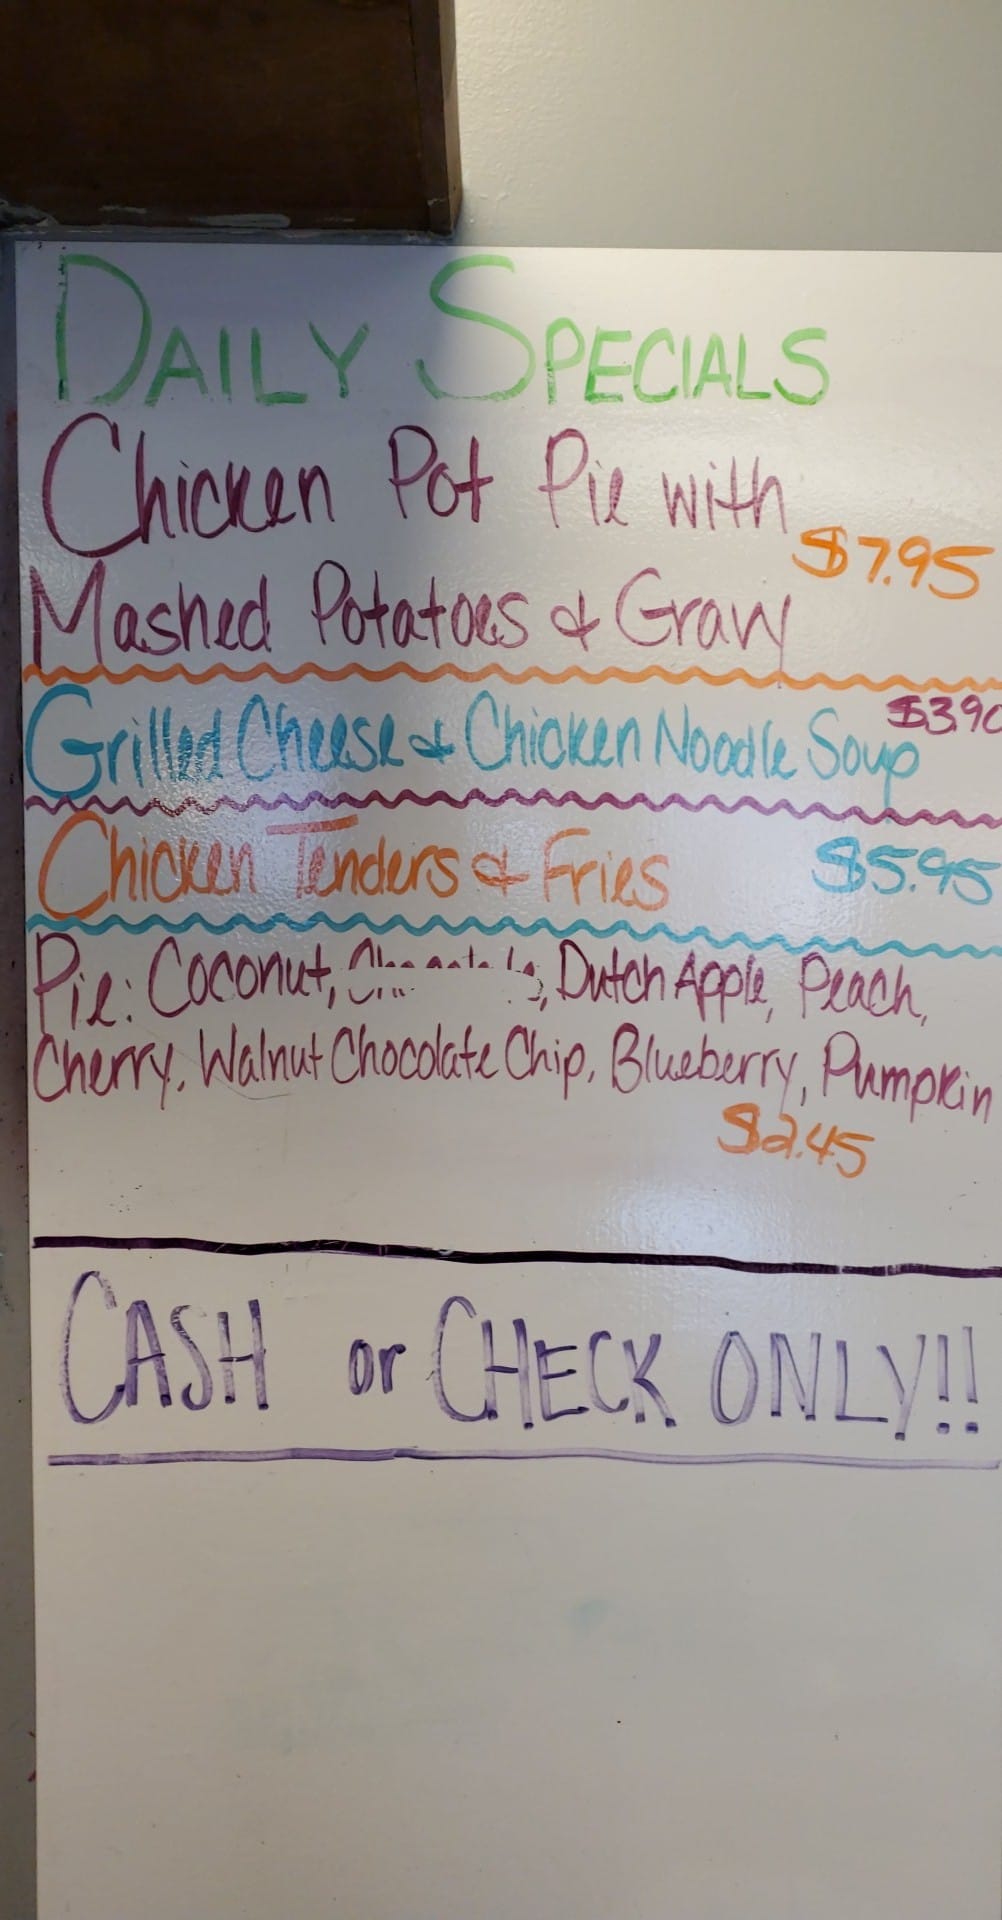 DAILY SPECIALS
Chicken Pot Pie with
$7.95
Mashed Potatoes & Gravy
$3.90
Grilled Cheese & Chicken Noodle Soup
Chicken Tenders & Fries $5.95
Pie: Coconut, Dutch Apple, Peach,
Cherry, Walnut Chocolate Chip, Blueberry, Pumpkin
$2.45
CASH or CHECK ONLY!!